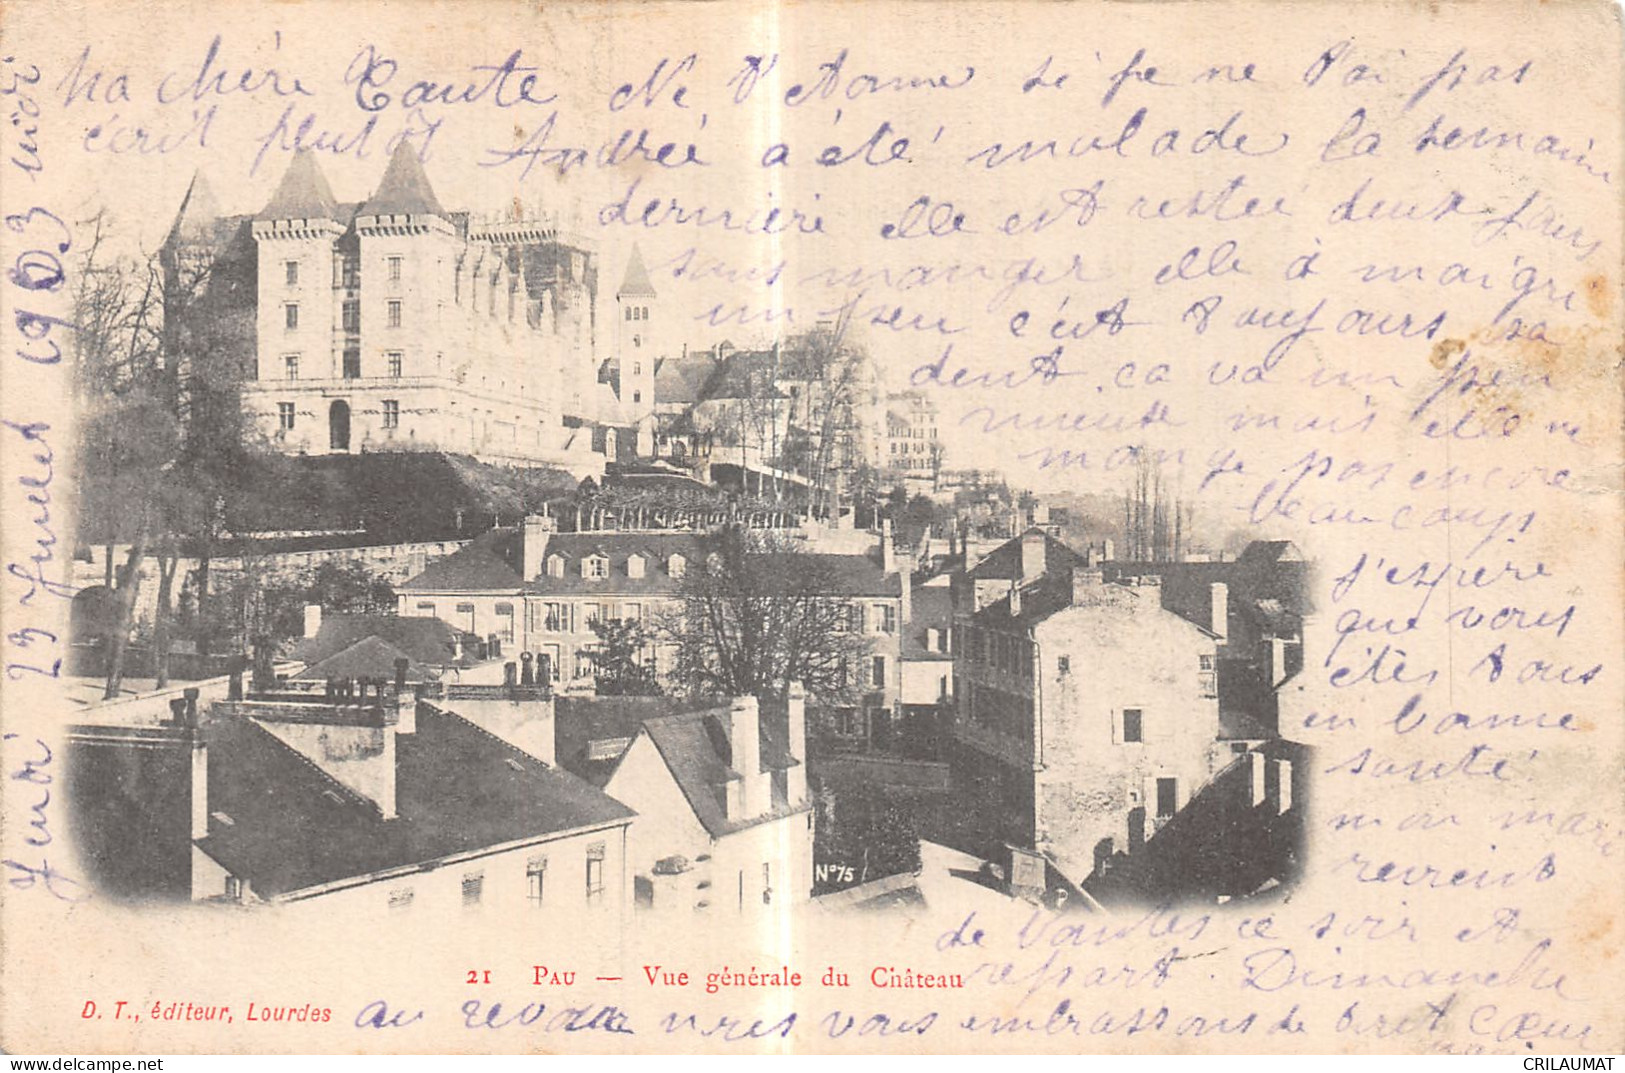 Ma chère Tante Ne t'etonne si je ne t'ai pas
écrit plutôt Andrée a été malade la semaine
dernière elle est restée deux jours
sans manger elle à maigri
un peu c'est toujours sa
dent, ca va un peu
mieuse mais elle ne
mange pas encore
beaucoups
J'espère
que vous
êtes tous
en bonne
santé
mon mari
revient
de Nantes ce soir et
repart Dimanche
au revoir nous vous embrassons de tout Cœur
Jeudi 23 Juillet 1903 midi
N°75
21 PAU — Vue générale du Château
D. T., éditeur, Lourdes
CRILAUMAT